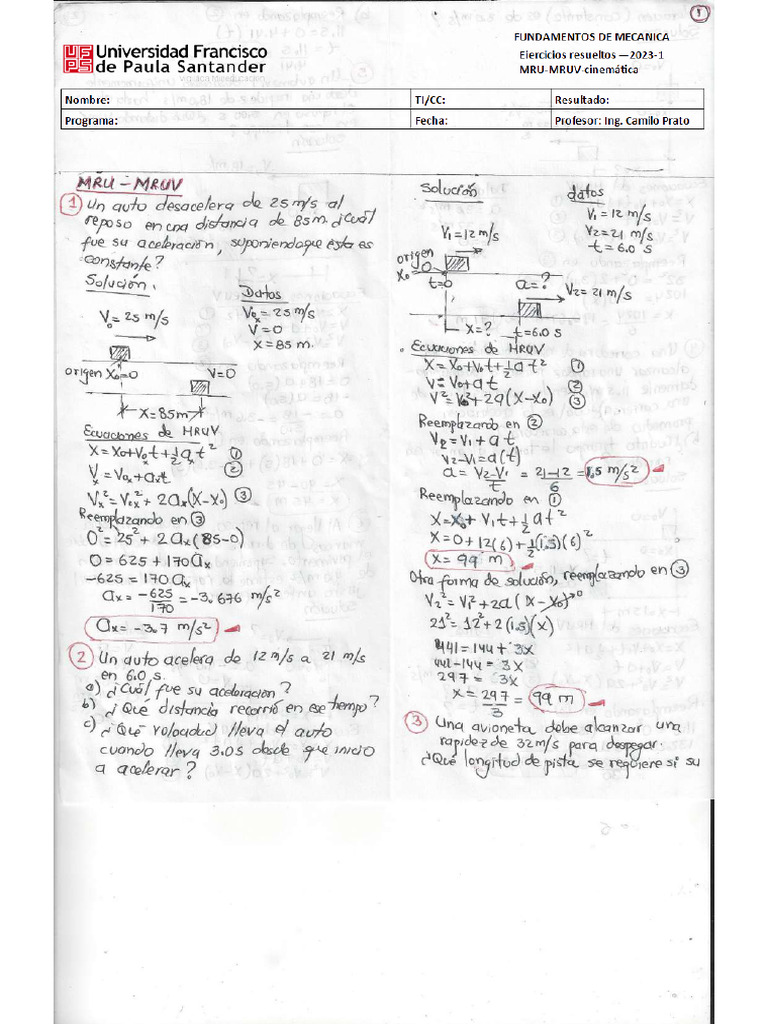 1
FUNDAMENTOS DE MECANICA
Ejercicios resueltos —2023-1
MRU-MRUV-cinemática
UFPS
Universidad Francisco
de Paula Santander
Vigilada Mineducación
Nombre: TI/CC: Resultado:
Programa: Fecha: Profesor: Ing. Camilo Prato
MRU - MRUV
1 Un auto desacelera de 25 m/s al
reposo en una distancia de 85m. ¿Cuál
fue su aceleración, suponiendo que ésta es
constante?
Solución.
Datos
V₀ = 25 m/s
V₀ₓ = 25 m/s
V = 0
X = 85 m.
origen X₀=0
V=0
X=85m
Ecuaciones de MRUV
X = X₀+V₀ₓt+½aₓt² ①
Vₓ = V₀ₓ+aₓt ②
Vₓ² = V₀ₓ²+2aₓ(X-X₀) ③
Reemplazando en ③
0² = 25² + 2aₓ(85-0)
0 = 625 + 170aₓ
-625 = 170aₓ
aₓ = -625/170 = -3.676 m/s²
aₓ = -3.7 m/s²
2 Un auto acelera de 12 m/s a 21 m/s
en 6.0 s.
a) ¿Cuál fue su aceleración?
b) ¿Qué distancia recorrió en ese tiempo?
c) ¿Qué velocidad lleva el auto
cuando lleva 3.0s desde que inicio
a acelerar?
Solución
datos
V₁ = 12 m/s
V₂ = 21 m/s
t = 6.0 s
V₁ = 12 m/s
origen
X₀ 0
t=0
a=?
V₂ = 21 m/s
X=?
t=6.0 s
Ecuaciones de MRUV
X = X₀+V₀t+½at² ①
V = V₀+at ②
V² = V₀²+2a(X-X₀) ③
Reemplazando en ②
V₂ = V₁+at
V₂-V₁ = a(t)
a = V₂-V₁/t = 21-12/6 = 1.5 m/s²
Reemplazando en ①
X = X₀+V₁t+½at²
X = 0+12(6)+½(1.5)(6)²
X = 99 m
Otra forma de solución, reemplazando en ③
V₂² = V₁²+2a(X-X₀)→0
21² = 12²+2(1.5)(X)
441 = 144 + 3X
441-144 = 3X
297 = 3X
X = 297/3 = 99 m
3 Una avioneta debe alcanzar una
rapidez de 32m/s para despegar.
¿Qué longitud de pista se requiere si su